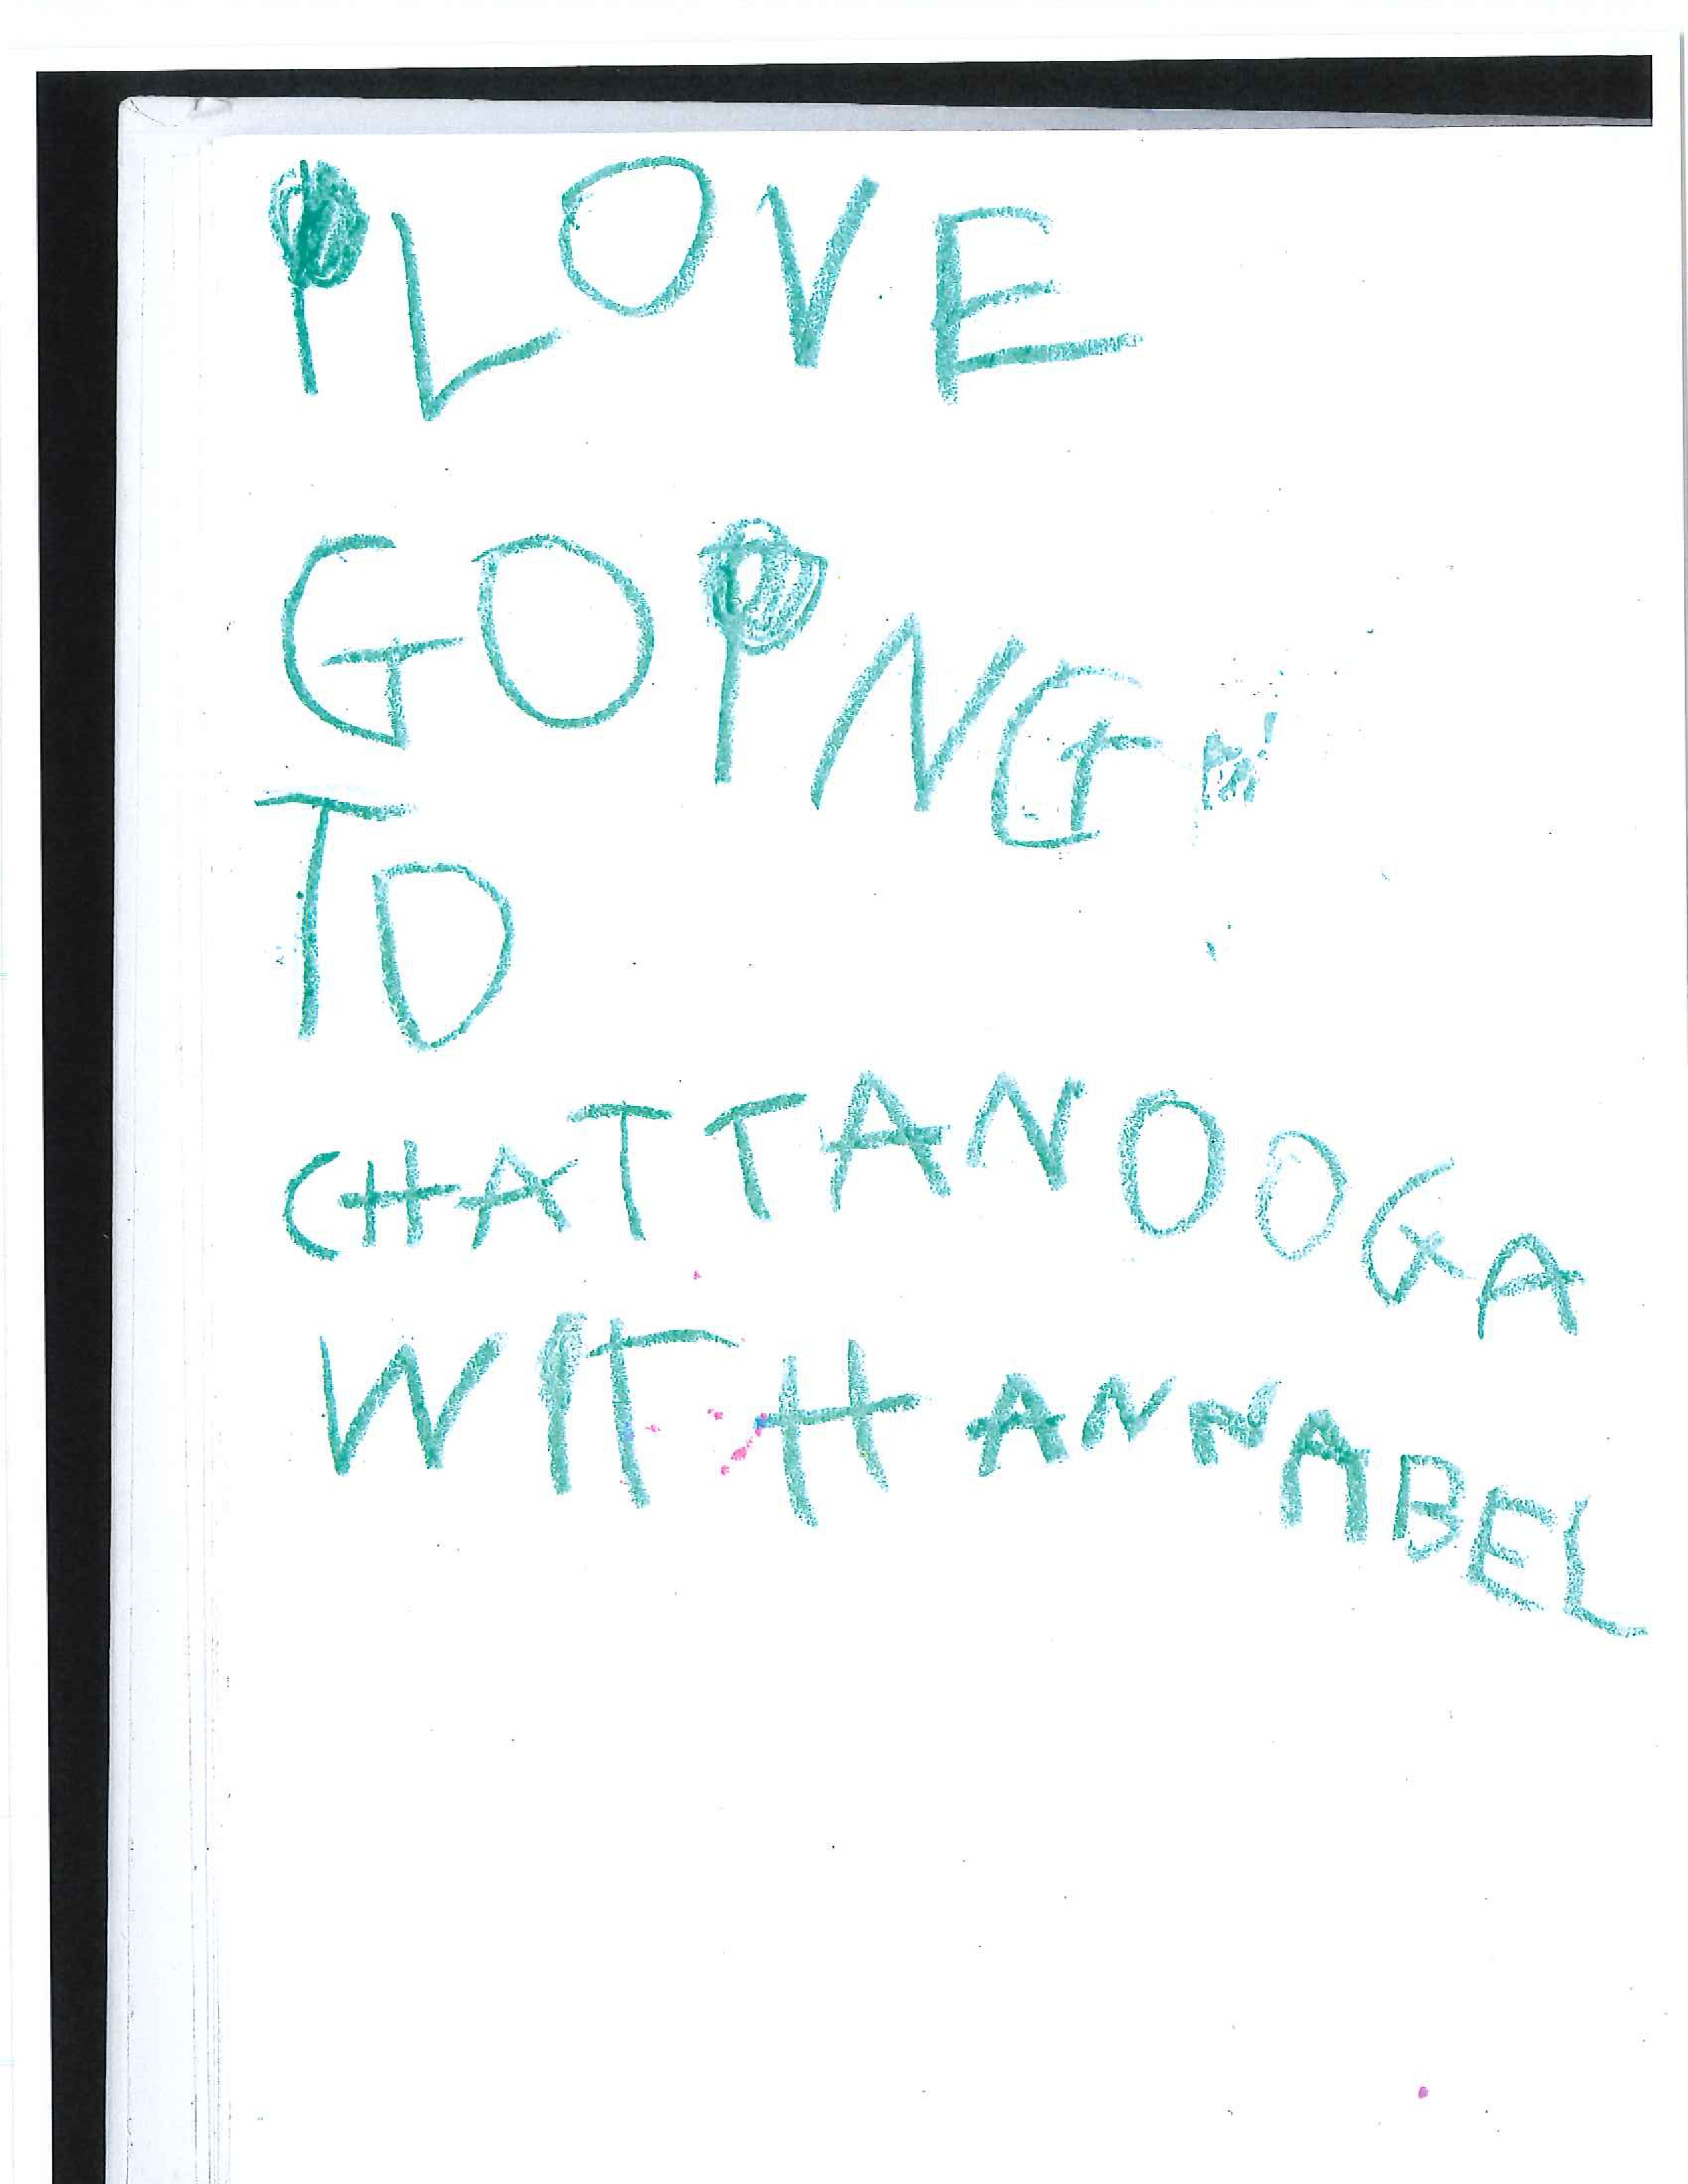 I LOVE
GOING
TO
CHATTANOOGA
WITH ANNABEL